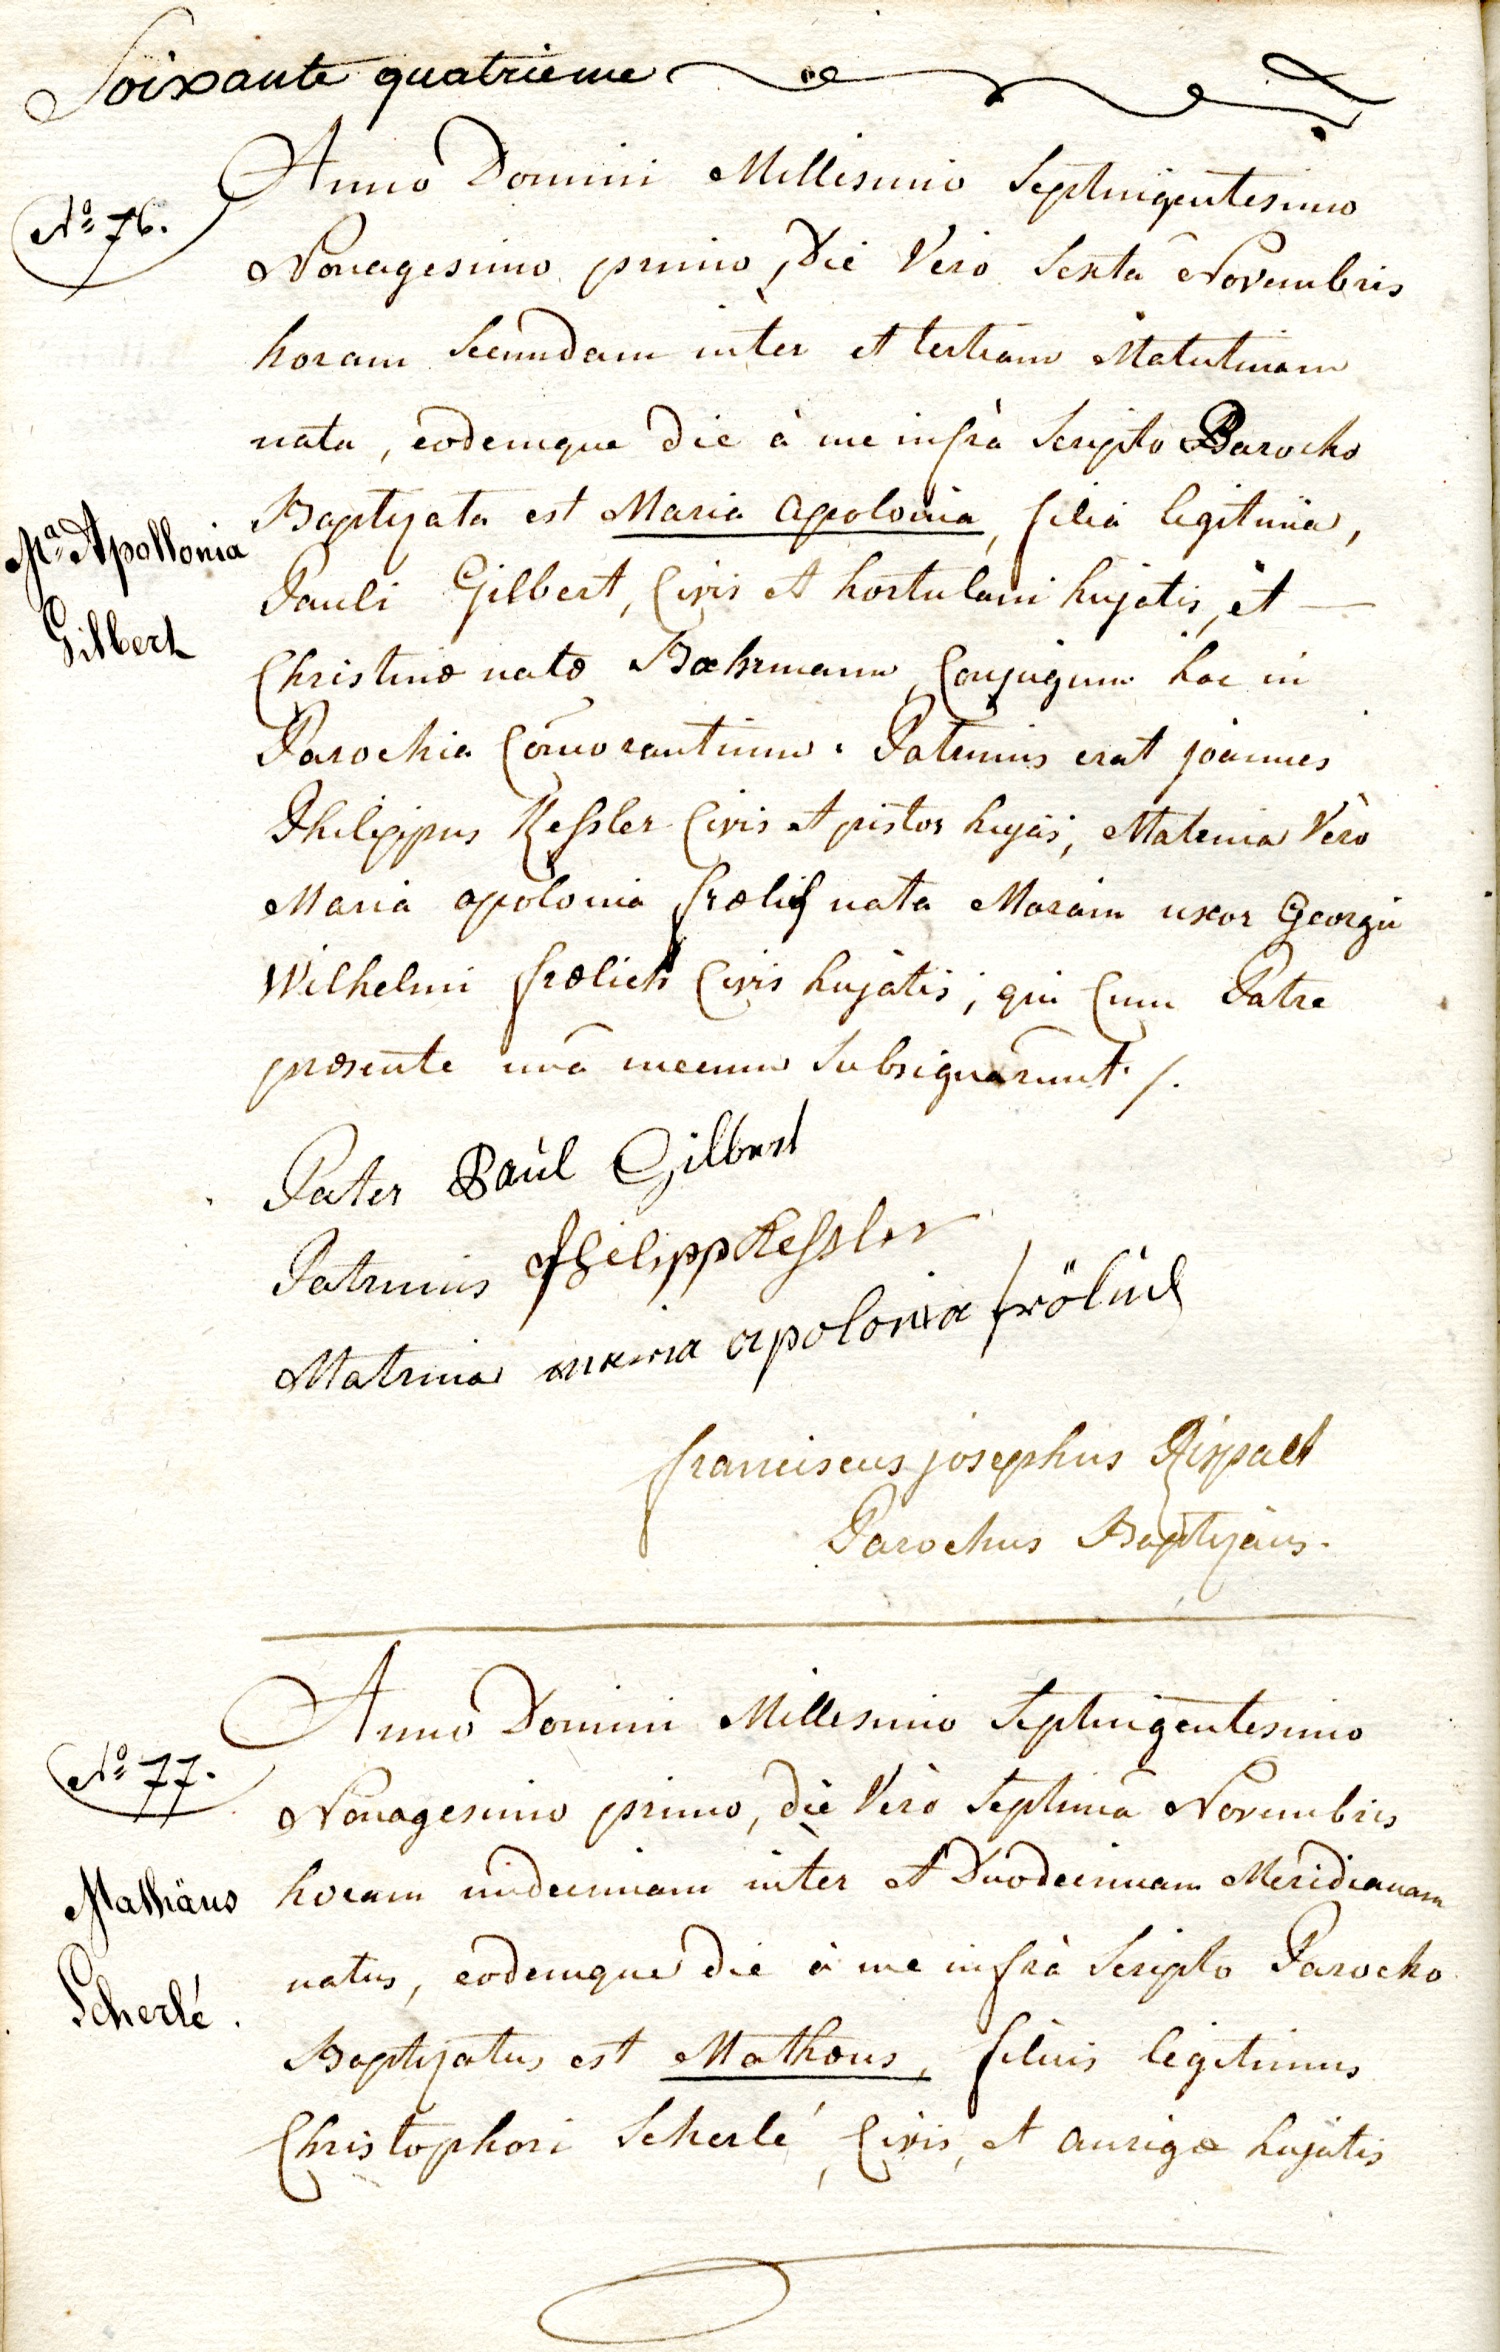 Soixante quatrieme
Anno Domini Millesimo Septingentesimo
No 76.
Nonagesimo primo, Die Vero Sexta Novembris
horam Secundam inter et tertiam Matutinam
nata, eodemque die à me infrà Scripto Parocho
Baptizata est Maria Apolonia, filia legitima,
Ma Apollonia
Gilbert
Pauli Gilbert, Civis et hortulani hujatis, et —
Christinæ natæ Bæhrmann, Conjugum hac in
Parochia Com̄orantium. Patrinus erat joannes
Philippus Kessler Civis et pistor hujas, Matrina Vero
Maria apolonia frœlich nata Marain uxor Georgii
Wilhelmi frœlich Civis hujatis, qui Cum Patre
præsente unâ mecum Subsignârunt /.
Pater Paùl Gilbert
Patrinus Philipp Kessler
Matrina maria apolonia frölich
franciscus josephus Rippalt
Parochus Baptizans.
Anno Domini Millesimo Septingentesimo
No 77.
Nonagesimo primo, die Vero Septima Novembris
horam undecimam inter et Duodecimam Meridianam
Mathäus
Scherlé.
natus, eodemque die à me infrà Scripto Parocho
Baptizatus est Mathæus, filius legitimus
Christophori Scherlé, Civis, et aurigæ hujatis